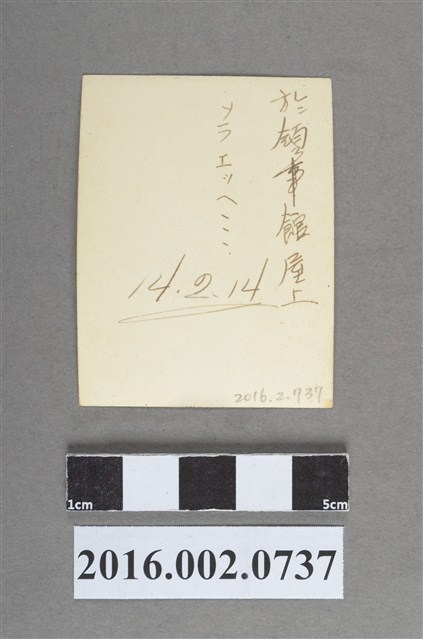 於領事館屋上
ソラエッヘヘヘ……
14.2.14
2016.2.737
1cm
5cm
2016.002.0737